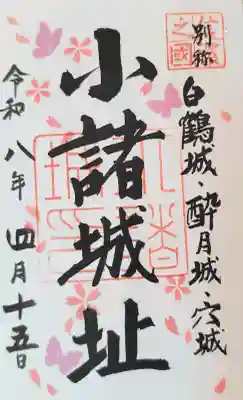 別称
白鶴城・酔月城・穴城
小諸城址
令和八年 四月十五日